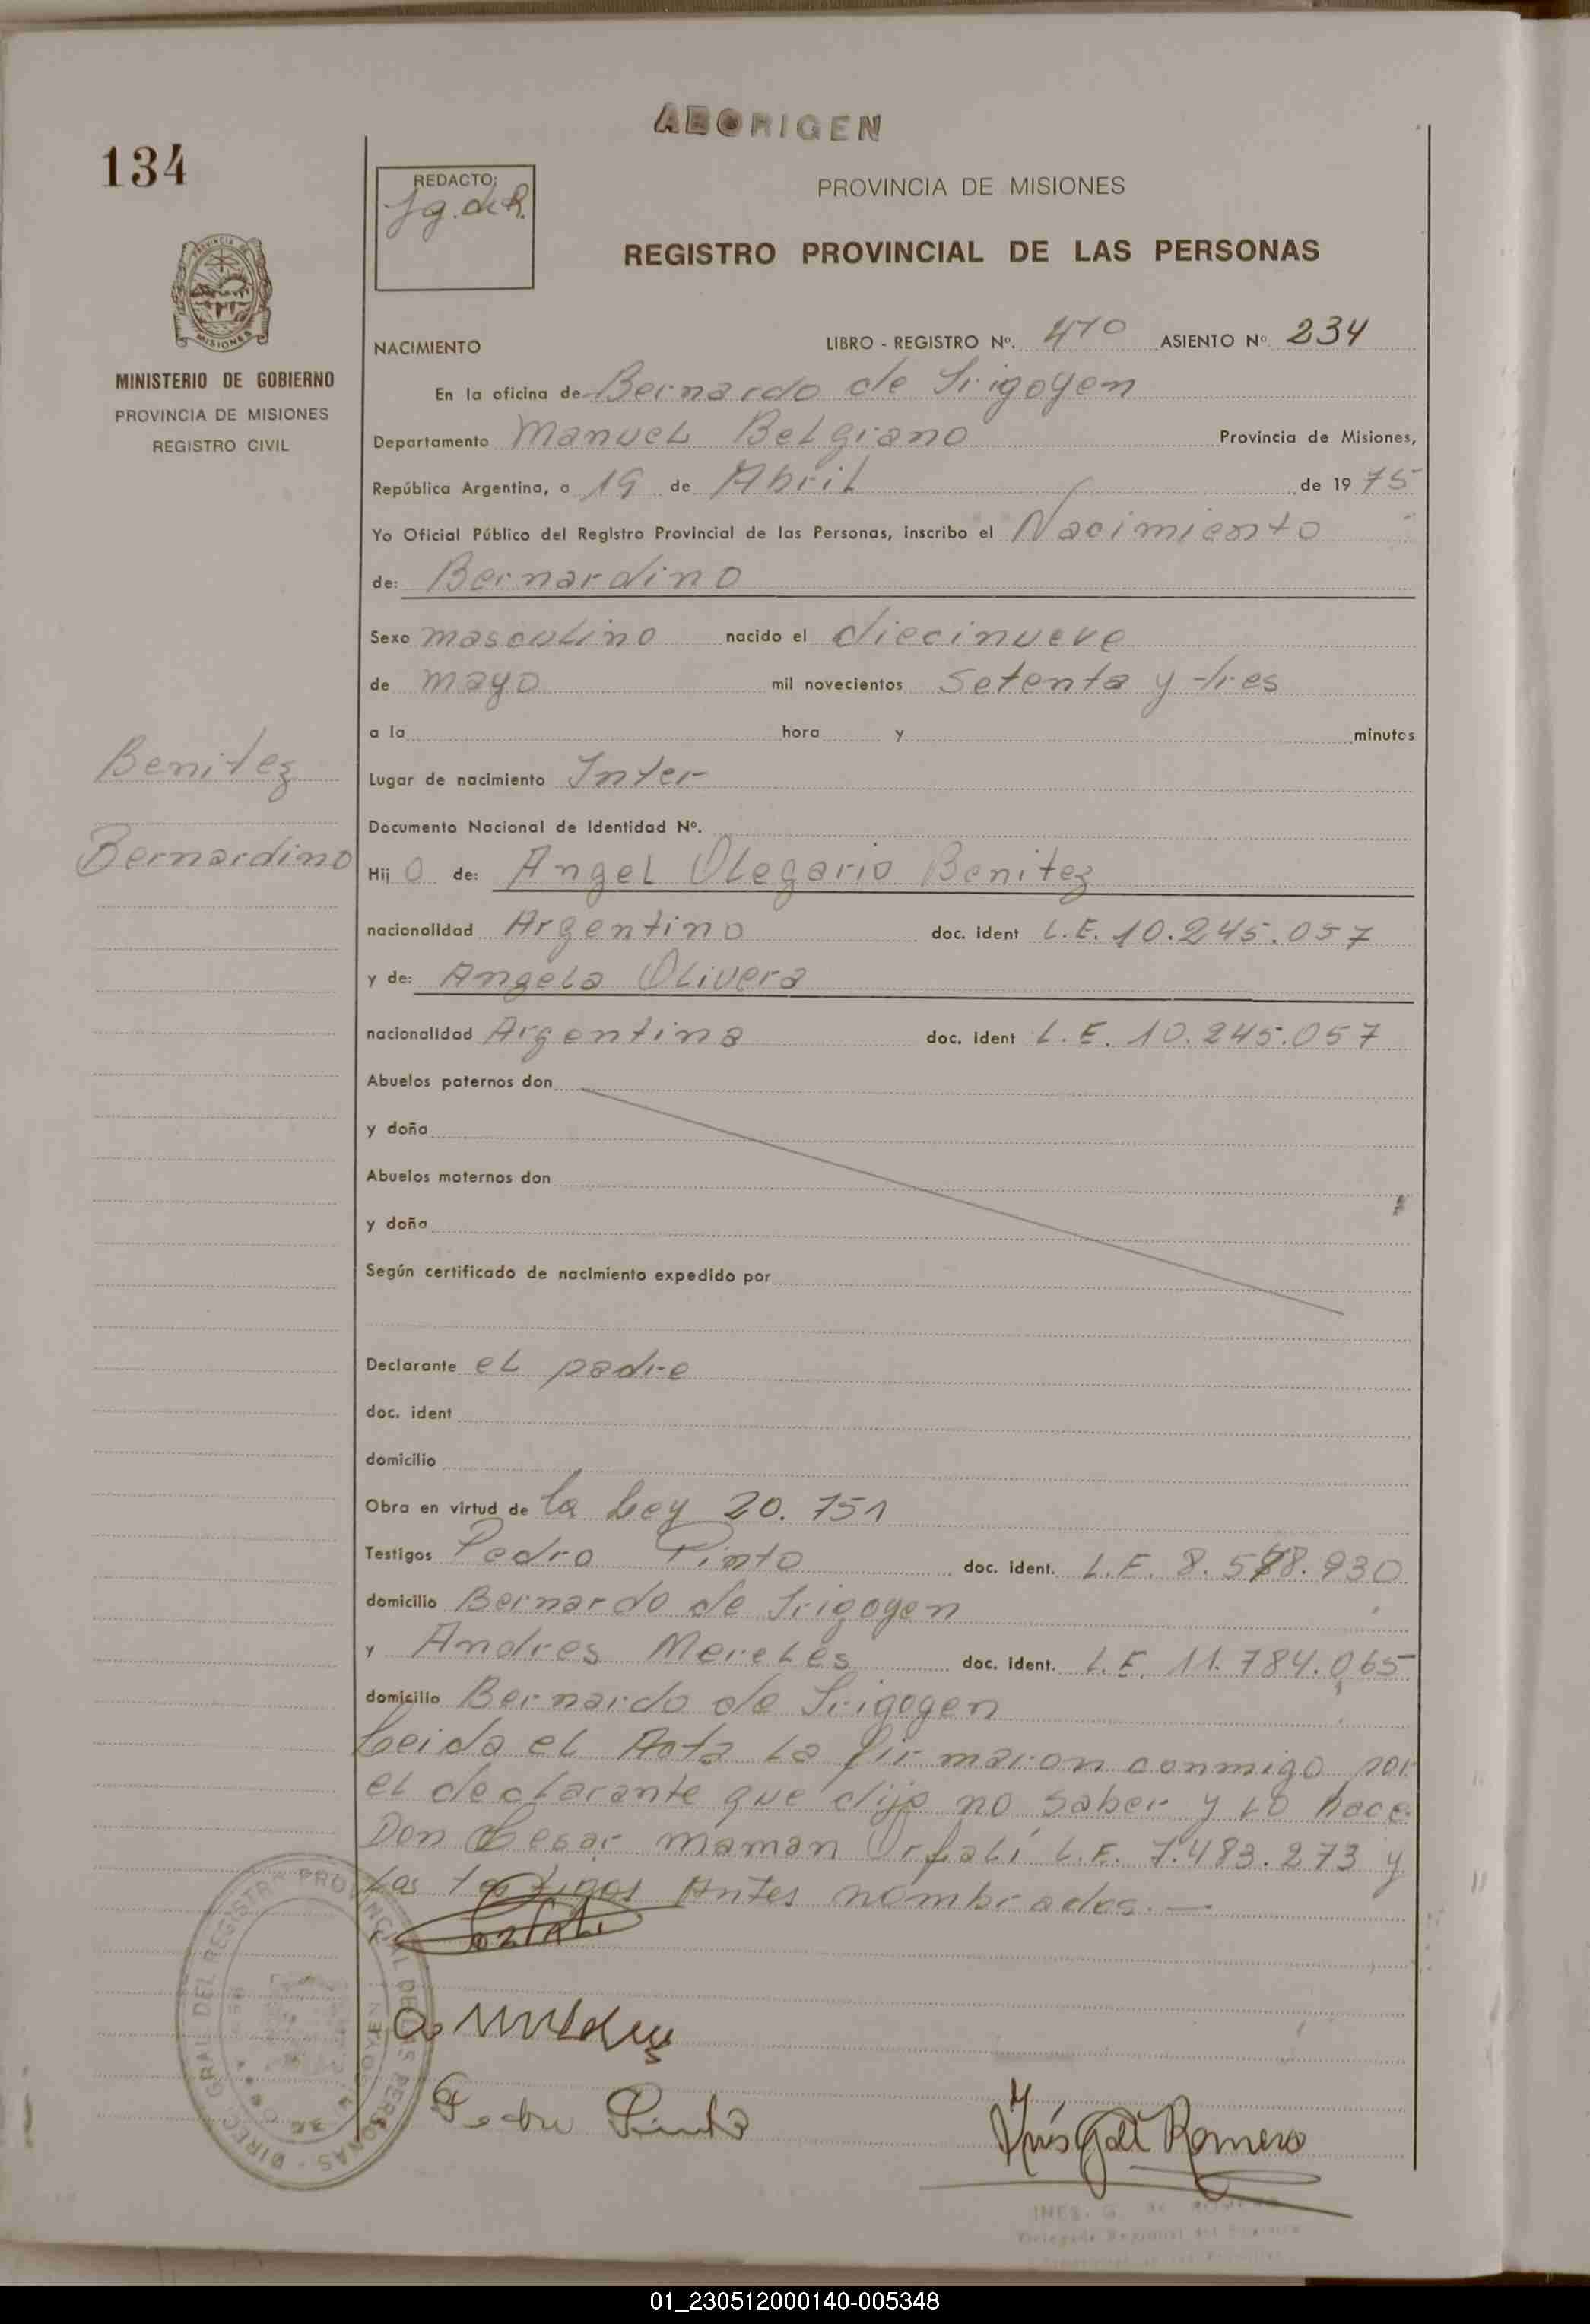 ABORIGEN
134
REDACTO:
J g. de R.
PROVINCIA DE MISIONES
REGISTRO PROVINCIAL DE LAS PERSONAS
MINISTERIO DE GOBIERNO
PROVINCIA DE MISIONES
REGISTRO CIVIL
NACIMIENTO LIBRO - REGISTRO Nº. 470 ASIENTO Nº 234
En la oficina de Bernardo de Irigoyen
Departamento Manuel Belgrano Provincia de Misiones,
República Argentina, a 19 de Abril de 1975
Yo Oficial Público del Registro Provincial de las Personas, inscribo el Nacimiento
de: Bernardino
Sexo masculino nacido el diecinueve
de mayo mil novecientos setenta y tres
a la hora y minutos
Benitez
Bernardino
Lugar de nacimiento Inter
Documento Nacional de Identidad Nº.
Hij o de: Angel Olegario Benitez
nacionalidad Argentino doc. ident L.E. 10.245.057
y de: Angela Olivera
nacionalidad Argentina doc. ident L.E. 10.245.057
Abuelos paternos don
y doña
Abuelos maternos don
y doña
Según certificado de nacimiento expedido por
Declarante el padre
doc. ident
domicilio
Obra en virtud de la Ley 20.751
Testigos Pedro Pinto doc. ident. L.E. 8.588.930
domicilio Bernardo de Irigoyen
y Andres Mereles doc. ident. L.E. 11.784.065
domicilio Bernardo de Irigoyen
Leida el Acta la firmaron conmigo por
el declarante que dijo no saber y lo hace
Don Cesar maman Orfali L.E. 7.483.273 y
los testigos Antes nombrados.—
DIREC. GRAL DEL REGISTRO PROVINCIAL DE LAS PERSONAS
Pedro Pinto
Inés G de Romero
INES. G. de ROMERO
01_230512000140-005348